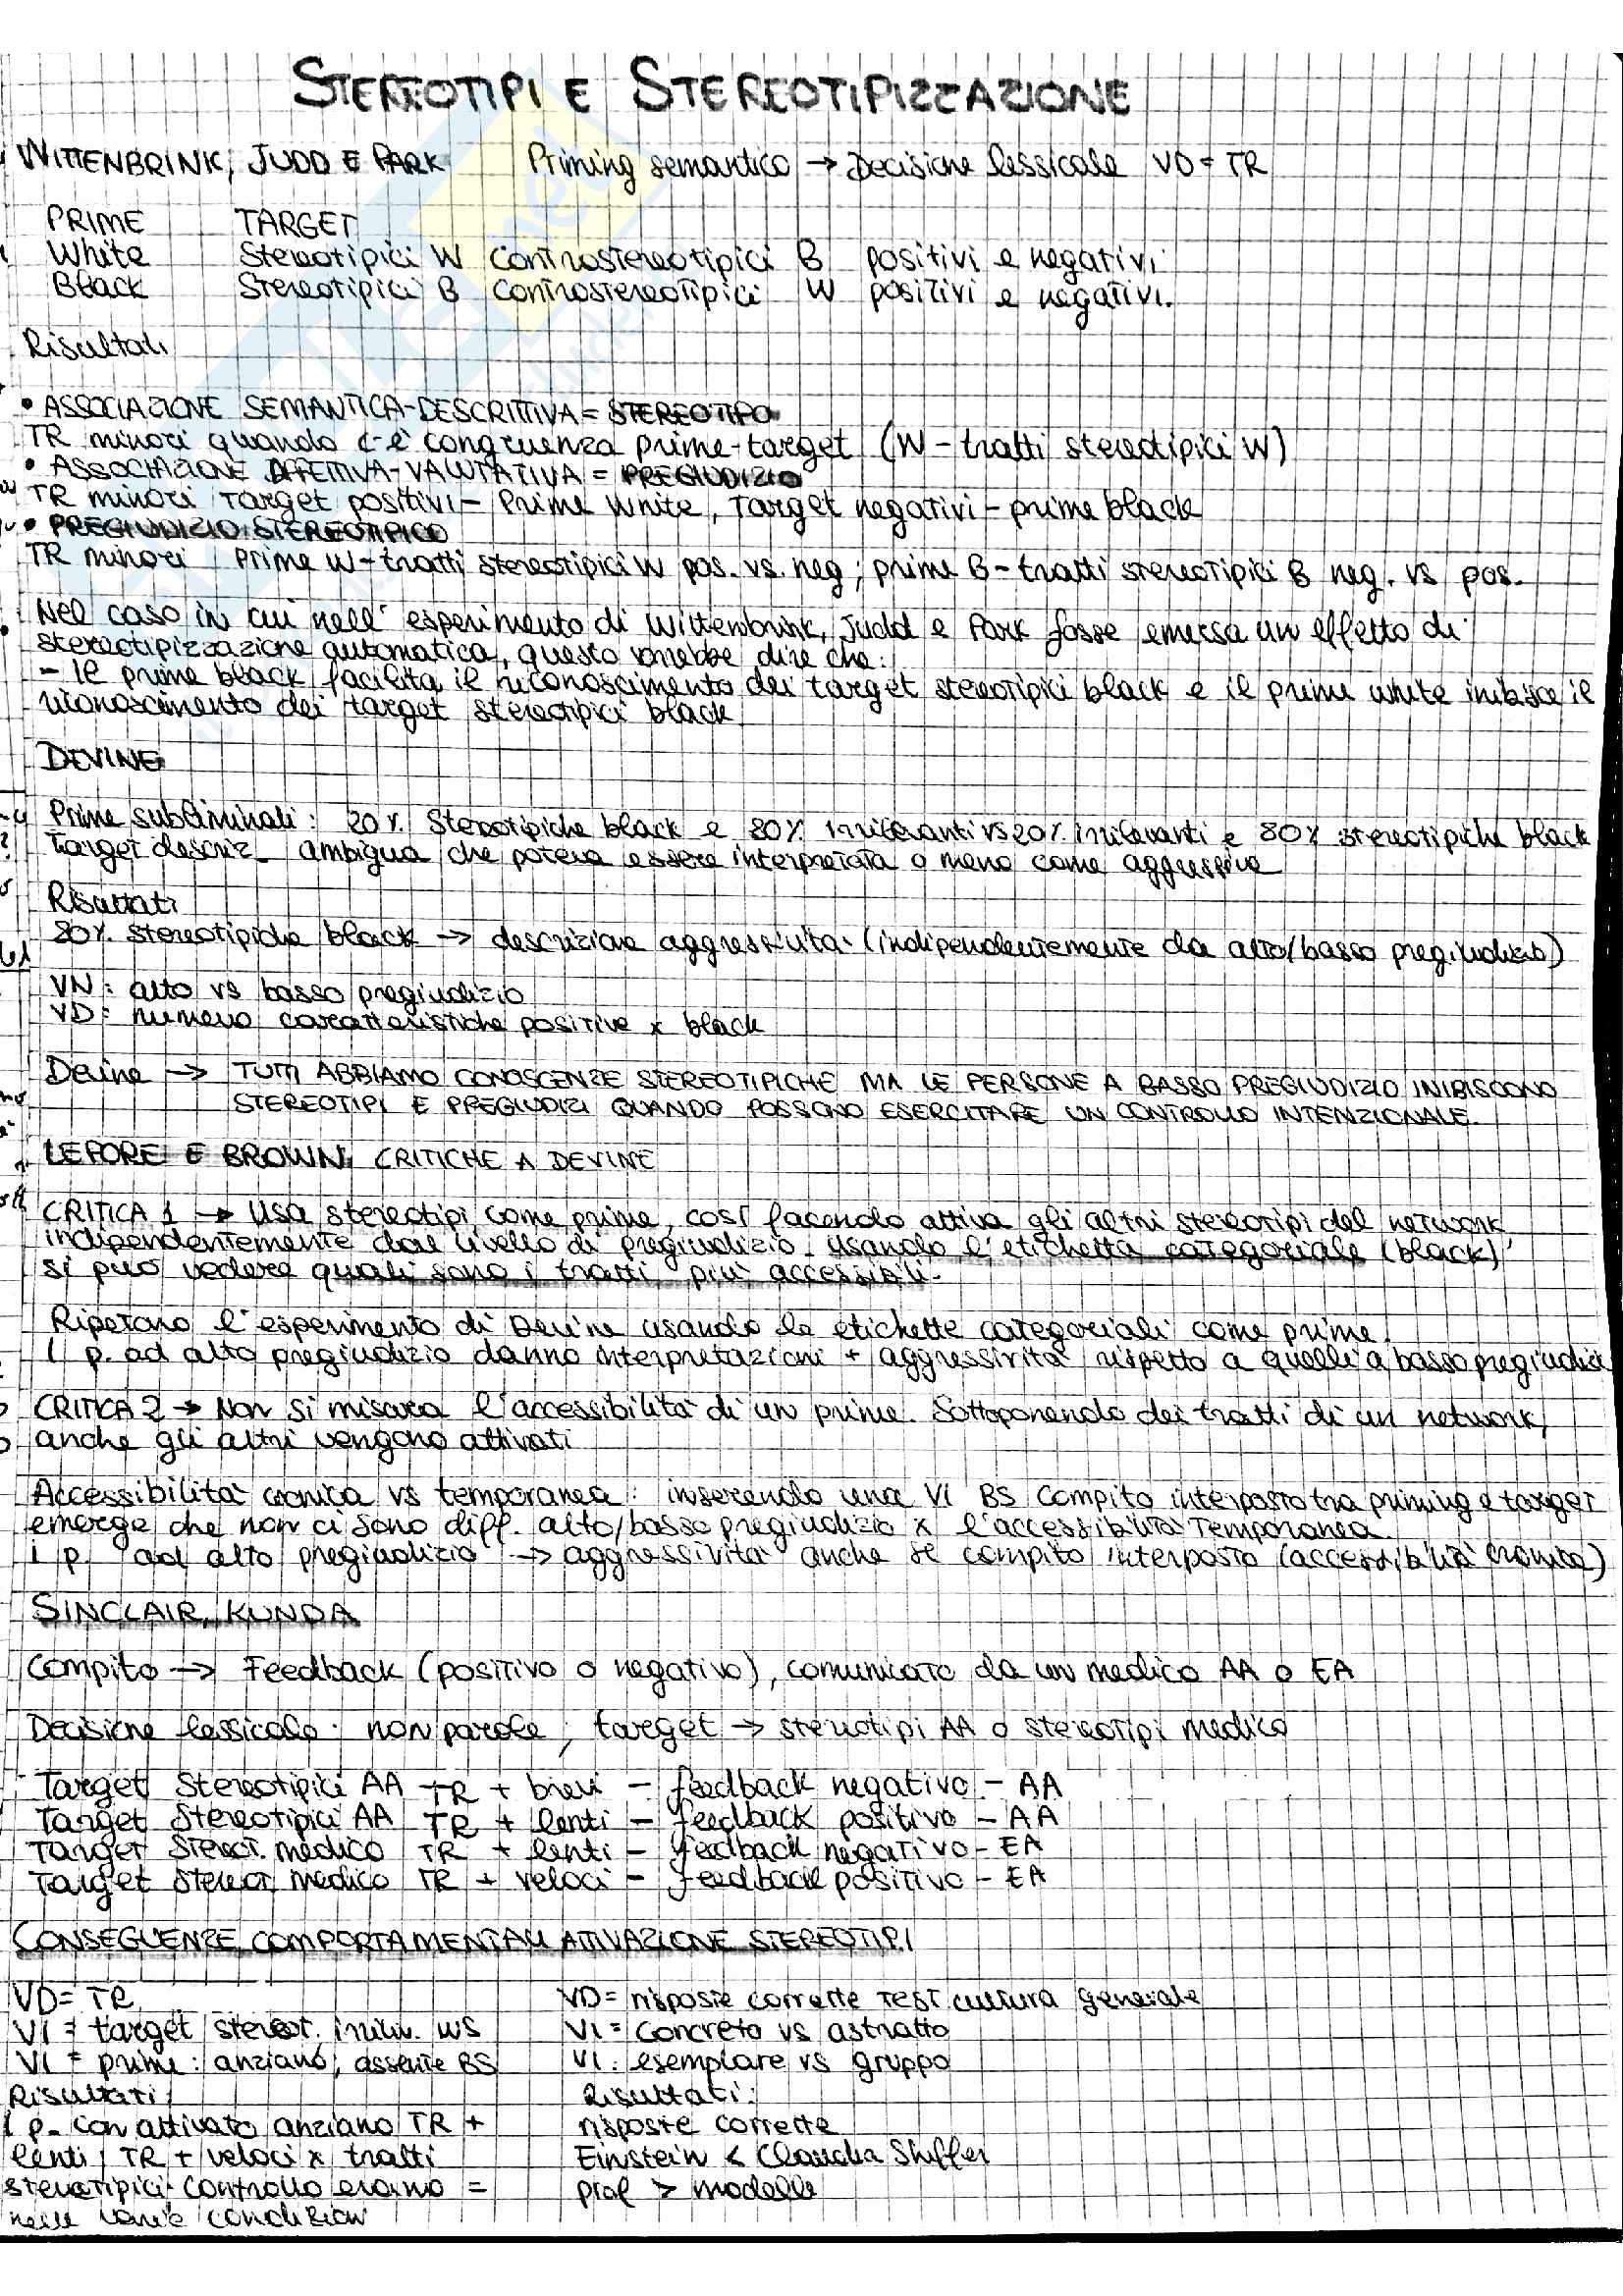 STEREOTIPI E STEREOTIPIZZAZIONE
WITTENBRINK, JUDD E PARK Priming semantico → Decisione lessicale VD = TR
PRIME TARGET
White Stereotipici W Controstereotipici B positivi e negativi
Black Stereotipici B Controstereotipici W positivi e negativi.
Risultati
• ASSOCIAZIONE SEMANTICA-DESCRITTIVA = STEREOTIPO
TR minori quando c'è congruenza prime-target (W - tratti stereotipici W)
• ASSOCIAZIONE AFFETTIVA-VALUTATIVA = PREGIUDIZIO
TR minori Target positivi - Prime White, Target negativi - prime black
• PREGIUDIZIO STEREOTIPICO
TR minori Prime W - tratti stereotipici W pos. vs. neg; prime B - tratti stereotipici B neg. vs pos.
Nel caso in cui nell'esperimento di Wittenbrink, Judd e Park fosse emersa un effetto di
stereotipizzazione automatica, questo vorrebbe dire che:
- Il prime black facilita il riconoscimento dei target stereotipici black e il prime white inibisce il
riconoscimento dei target stereotipici black
DEVINE
Prime subliminali: 20% Stereotipiche black e 80% irrilevanti vs 20% irrilevanti e 80% stereotipiche black
Target descriz. ambigua che poteva essere interpretata o meno come aggressiva
Risultati
80% stereotipiche black → descrizione aggressività (indipendentemente da alto/basso pregiudizio)
VN: alto vs basso pregiudizio
VD: numero caratteristiche positive x black
Devine → TUTTI ABBIAMO CONOSCENZE STEREOTIPICHE MA LE PERSONE A BASSO PREGIUDIZIO INIBISCONO
STEREOTIPI E PREGIUDIZI QUANDO POSSONO ESERCITARE UN CONTROLLO INTENZIONALE.
LEPORE E BROWN CRITICHE A DEVINE
CRITICA 1 → Usa stereotipi come prime, così facendo attiva gli altri stereotipi del network,
indipendentemente dal livello di pregiudizio. Usando l'etichetta categoriale (black)
si può vedere quali sono i tratti più accessibili.
Ripetono l'esperimento di Devine usando le etichette categoriali come prime.
I p. ad alto pregiudizio danno interpretazioni + aggressività rispetto a quelli a basso pregiudizio
CRITICA 2 → Non si misura l'accessibilità di un prime. Sottoponendo dei tratti di un network,
anche gli altri vengono attivati
Accessibilità cronica vs temporanea: inserendo una VI BS compito interposto tra priming e target
emerge che non ci sono diff. alto/basso pregiudizio x l'accessibilità temporanea.
i p. ad alto pregiudizio → aggressività anche se compito interposto (accessibilità cronica)
SINCLAIR, KUNDA
Compito → Feedback (positivo o negativo), comunicato da un medico AA o EA
Decisione lessicale: non parole, target → stereotipi AA o stereotipi medico
Target Stereotipici AA TR + brevi - feedback negativo - AA
Target Stereotipici AA TR + lenti - feedback positivo - AA
Target Stereot. medico TR + lenti - feedback negativo - EA
Target stereot. medico TR + veloci - feedback positivo - EA
CONSEGUENZE COMPORTAMENTALI ATTIVAZIONE STEREOTIPI
VD = TR
VI = target stereot. irrilev. WS
VI = prime: anziano, assente BS
Risultati:
I p. con attivato anziano TR +
lenti, TR + veloci x tratti
stereotipici. Controllo erano =
nelle varie condizioni
VD = risposte corrette test cultura generale
VI = concreto vs astratto
VI: esemplare vs gruppo
Risultati:
risposte corrette
Einstein < Claudia Shiffer
prof > modelle